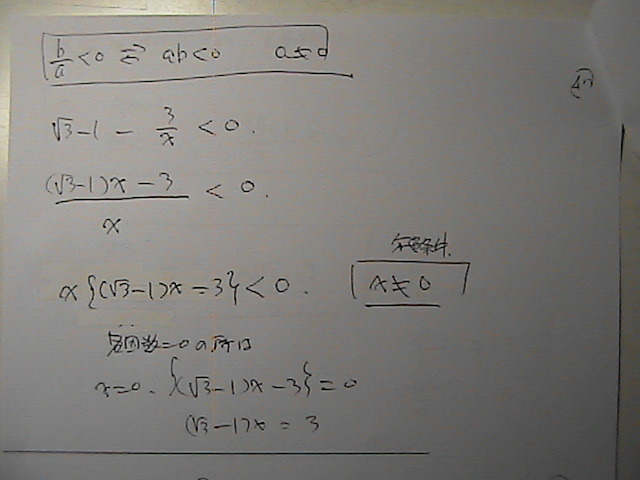 b/a < 0 ⇄ ab < 0 a ≠ 0
√3 - 1 - 3/x < 0.
((√3-1)x - 3)/x < 0.
x{(√3-1)x - 3} < 0. x ≠ 0
因数=0の所は
x=0. {(√3-1)x - 3} = 0
(√3-1)x = 3